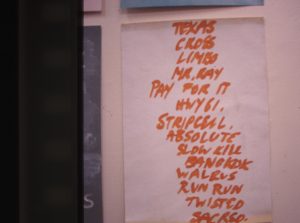 TEXAS
CROSS
LIMBO
MR. RAY
PAY FOR IT
HWY 61.
STRIPCELL.
ABSOLUTE
SLOW KILL
BANGKOK
WALRUS
RUN RUN
TWISTED
SACRED.
S